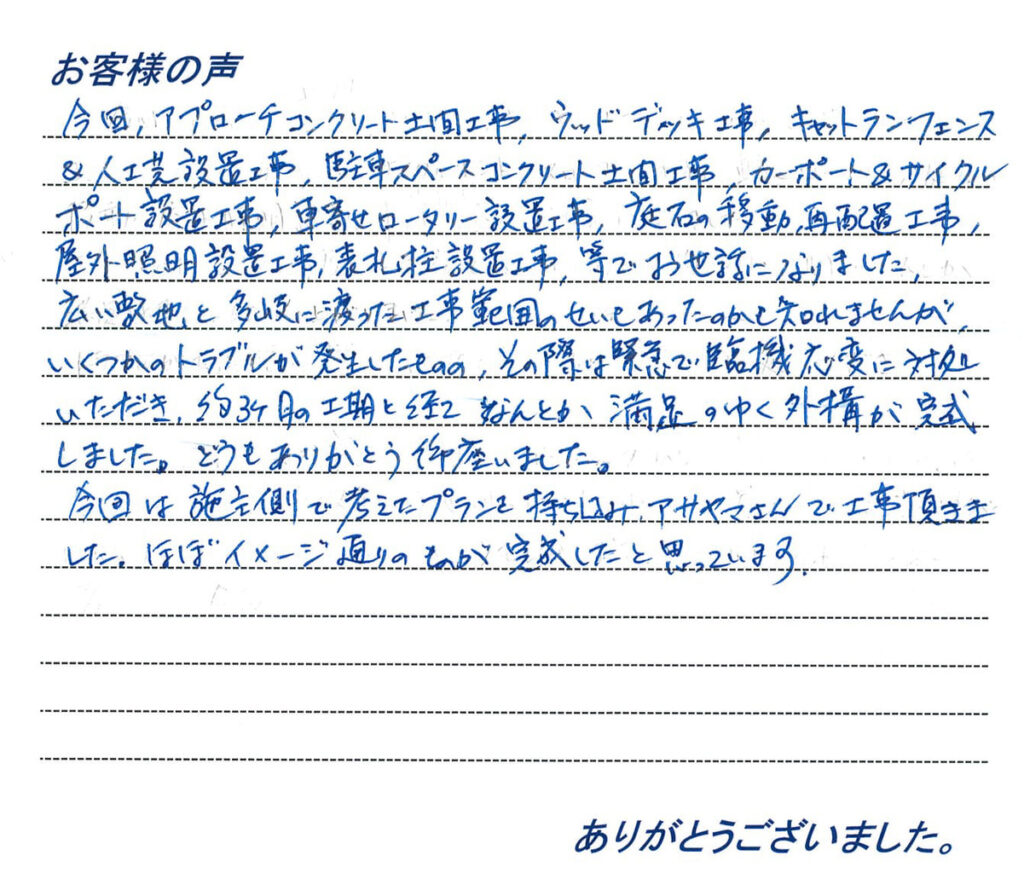 お客様の声
今回、アプローチコンクリート土間工事、ウッドデッキ工事、キャットランフェンス
&人工芝設置工事、駐車スペースコンクリート土間工事、カーポート&サイクル
ポート設置工事、車寄せロータリー設置工事、庭石の移動,再配置工事、
屋外照明設置工事、表札柱設置工事、等でお世話になりました、
広い敷地と多岐に渡った工事範囲のせいもあったのかも知れませんが、
いくつかのトラブルが発生したものの、その際は緊急で臨機応変に対処
いただき、約3ヶ月の工期を経てなんとか満足のゆく外構が完成
しました。どうもありがとう御座いました。
今回は施主側で考えたプランを持ち込み、アサヤマさんで工事頂きま
した。ほぼイメージ通りのものが完成したと思っています。
ありがとうございました。